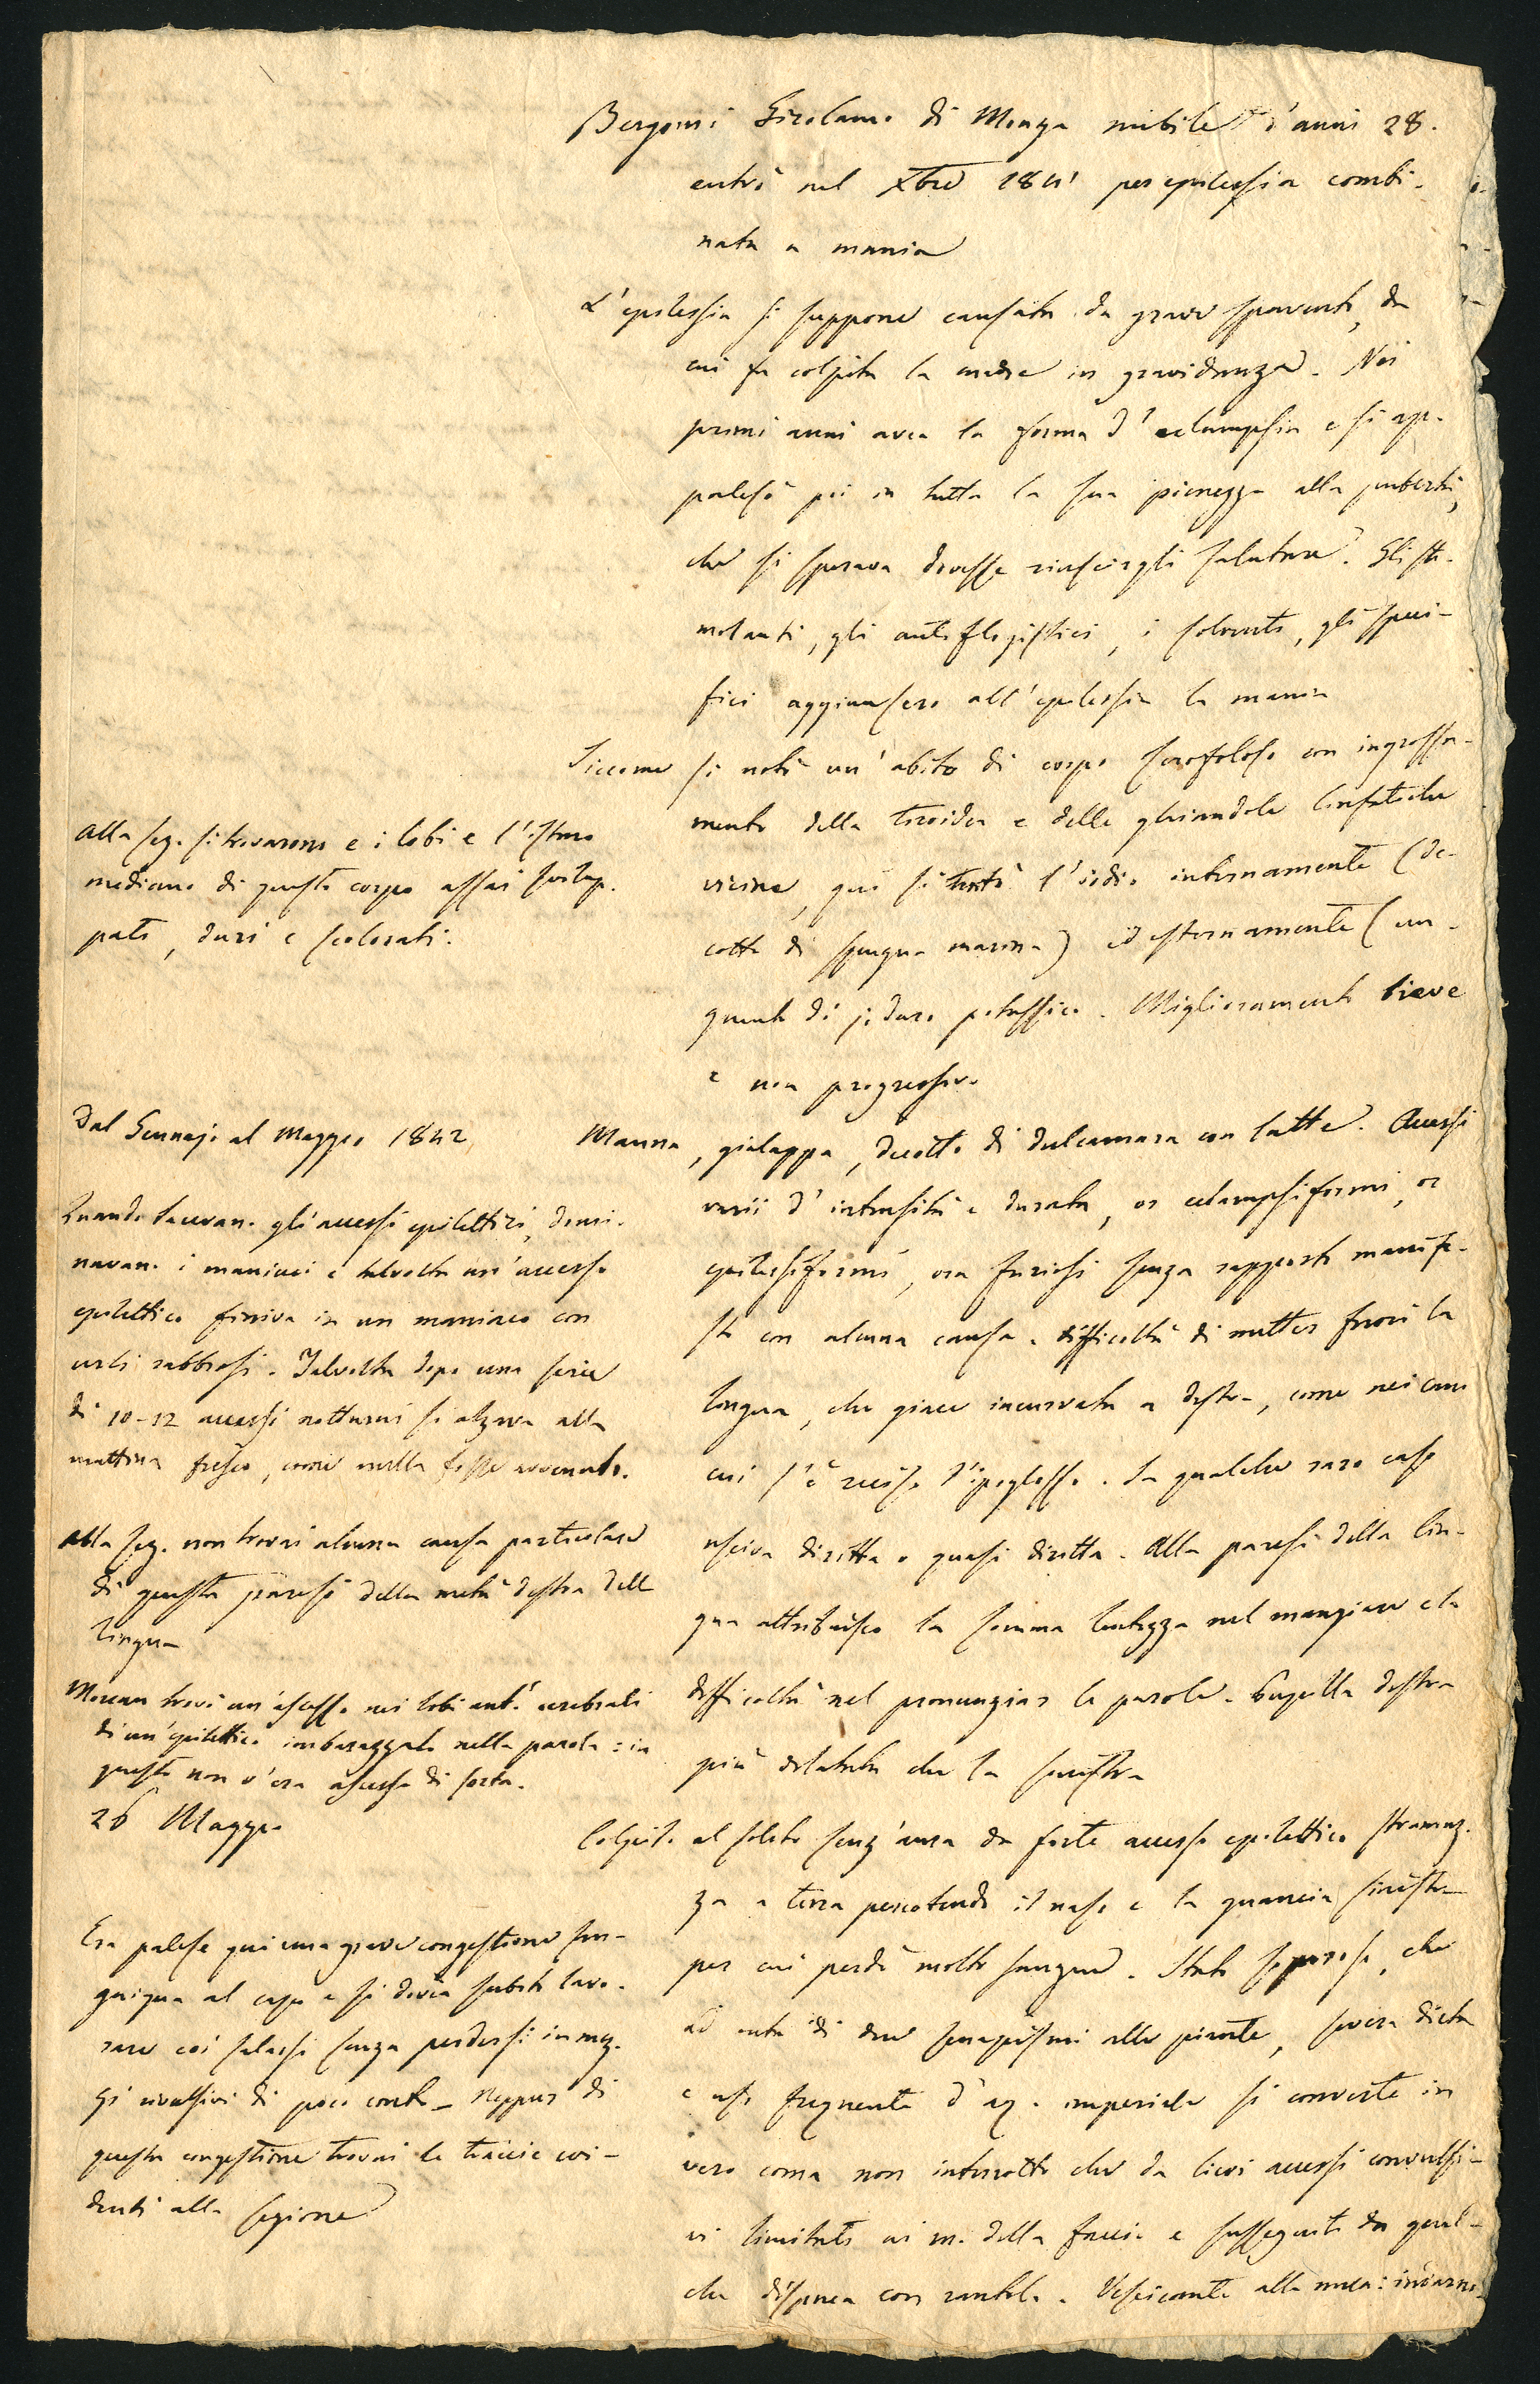 Bergomi Girolamo di Monza nubile d'anni 28.
entrò nel Xbre 1841 per epilessia combi-
nata a mania
L'epilessia si suppone causata da grave spavento, da
cui fu colpita la madre in gravidanza. Nei
primi anni avea la forma d'eclampsia e si ap-
palesò poi in tutta la sua pienezza alla pubertà,
che si sperava dovesse riuscirgli salutare. Gli sti-
molanti, gli antiflogistici, i solventi, gli speci-
fici aggiunsero all'epilessia la mania
Siccome si notò un'abito di corpo scrofoloso con ingrossa-
mento della tiroidea e delle ghiandole linfatiche
vicine, qui si tentò l'iodio internamente (de-
cotto di spugna marina) ed esternamente (un-
guento di joduro potassico. Miglioramento lieve
e non progressivo
Manna, gialappa, decotto di dulcamara con latte. Accessi
varii d'intensità e durata, or eclampsiformi, or
epilessiformi, ora furiosi senza rapporto manife-
sto con alcuna causa. difficoltà di metter fuori la
lingua, che giace incurvata a destra, come nei cani
cui s'è reciso l'ipoglosso. In qualche raro caso
usciva diritta o quasi diritta. Alla paresi della lin-
gua attribuisco la somma lentezza nel mangiare e la
difficoltà nel pronunziar le parole. Pupilla destra
più dilatata che la sinistra
Colpito al solito senz'aura da forte accesso epilettico stramaz-
za a terra percotendo il naso e la guancia sinistra
per cui perdè molto sangue. Stato soporoso, che
ad onta di due senapismi alle piante, severa dieta
e uso frequente d'aq. imperiale si converte in
vero coma non interrotto che da lievi accessi convulsi-
vi limitati ai m. della faccia e susseguiti da qual-
che dispnea con rantolo. Vescicante alla nuca: indarno
Alla sez. si trovarono e i lobi e l'istmo
mediano di questo corpo assai svilup-
pati, duri e scolorati.
Dal Gennajo al Maggio 1842
Quando tacevano gli accessi epilettici, domi-
navano i maniaci e talvolta un'accesso
epilettico finiva in un maniaco con
urli rabbiosi. Talvolta dopo una serie
di 10-12 accessi notturni si alzava alla
mattina fresco, come nulla fosse avvenuto.
Alla sez. non trovai alcuna causa particolare
di questa paresi della metà destra dell
lingua
Moreau trovò un'ascesso nei lobi ant.i cerebrali
di un'epilettico imbarazzato nella parola: in
questo non v'era ascesso di sorta.
26 Maggio
Era palese qui una grave congestione san-
guigna al capo e si dovea subito lavo-
rare coi salassi senza perdersi in mez-
zi rivulsivi di poco conto_ Neppur di
questa congestione trovai le traccie evi-
denti alla sezione